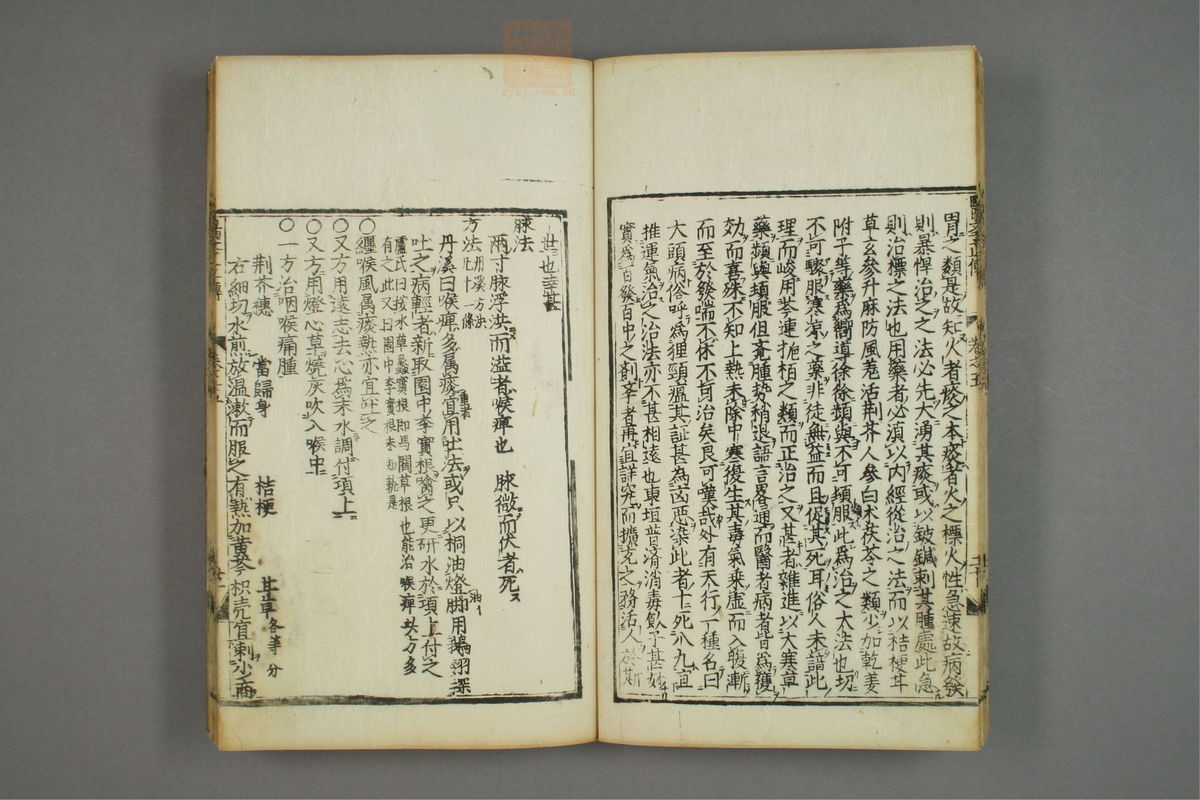 胃之類是故知火者痰之本痰者火之標火性急速故病發
則暴悍治之之法必先大湧其痰或以鈹鍼刺其腫處此急
則治標之法也用藥者必湏以內經從治之法而以桔梗甘
草玄參升麻防風羗活荆芥人參白木茯苓之類少加乾姜
附子等藥爲嚮導徐徐頻與不可頓服此爲治之大法也切
不可驟服寒凉之藥非徒無益而且促其死耳俗人未諳此
理而峻用芩連梔栢之類而正治之又甚者雜進以大寒草
藥頻與頓服但竟腫勢稍退語言畧通而醫者病者皆爲獲
効而喜殊不知上熱未除中寒復生其毒氣乘虛而入腹漸
而至於發喘不休不可治矣良可嘆哉外有天行一種名曰
大頭病俗呼爲狸頭瘟其証甚爲凶惡染此者十死八九宜
推運氣治之治法亦不甚相遠也東垣普濟消毒飲子甚妙
實爲百發百中之劑宰者再宜詳究而擴充之務活人於斯
世也幸甚
脉法
兩寸脉浮洪而溢者喉痺也 脉微而伏者死
方法 丹溪方法 凡十一條
丹溪曰喉痺多属痰 重者 宜用吐法或只以桐油燈脚用鵝翎探
吐之病輕者新取園中李實根噙之更研水於項上付之
盧氏曰按水草蠡實根即馬藺草根也能治喉痺其方多
有之此又曰園中李實根未知孰是
〇纏喉風属痰熱亦宜吐之
〇又方用遠志去心爲末水調付項上
〇又方用燈心草燒灰吹入喉中
〇一方治咽喉痛腫
荆芥穗 當歸身 桔梗 甘草各等分
右細切水煎放温漱而服之有熱加黄芩枳壳宜刺少商
zysj.com.cn